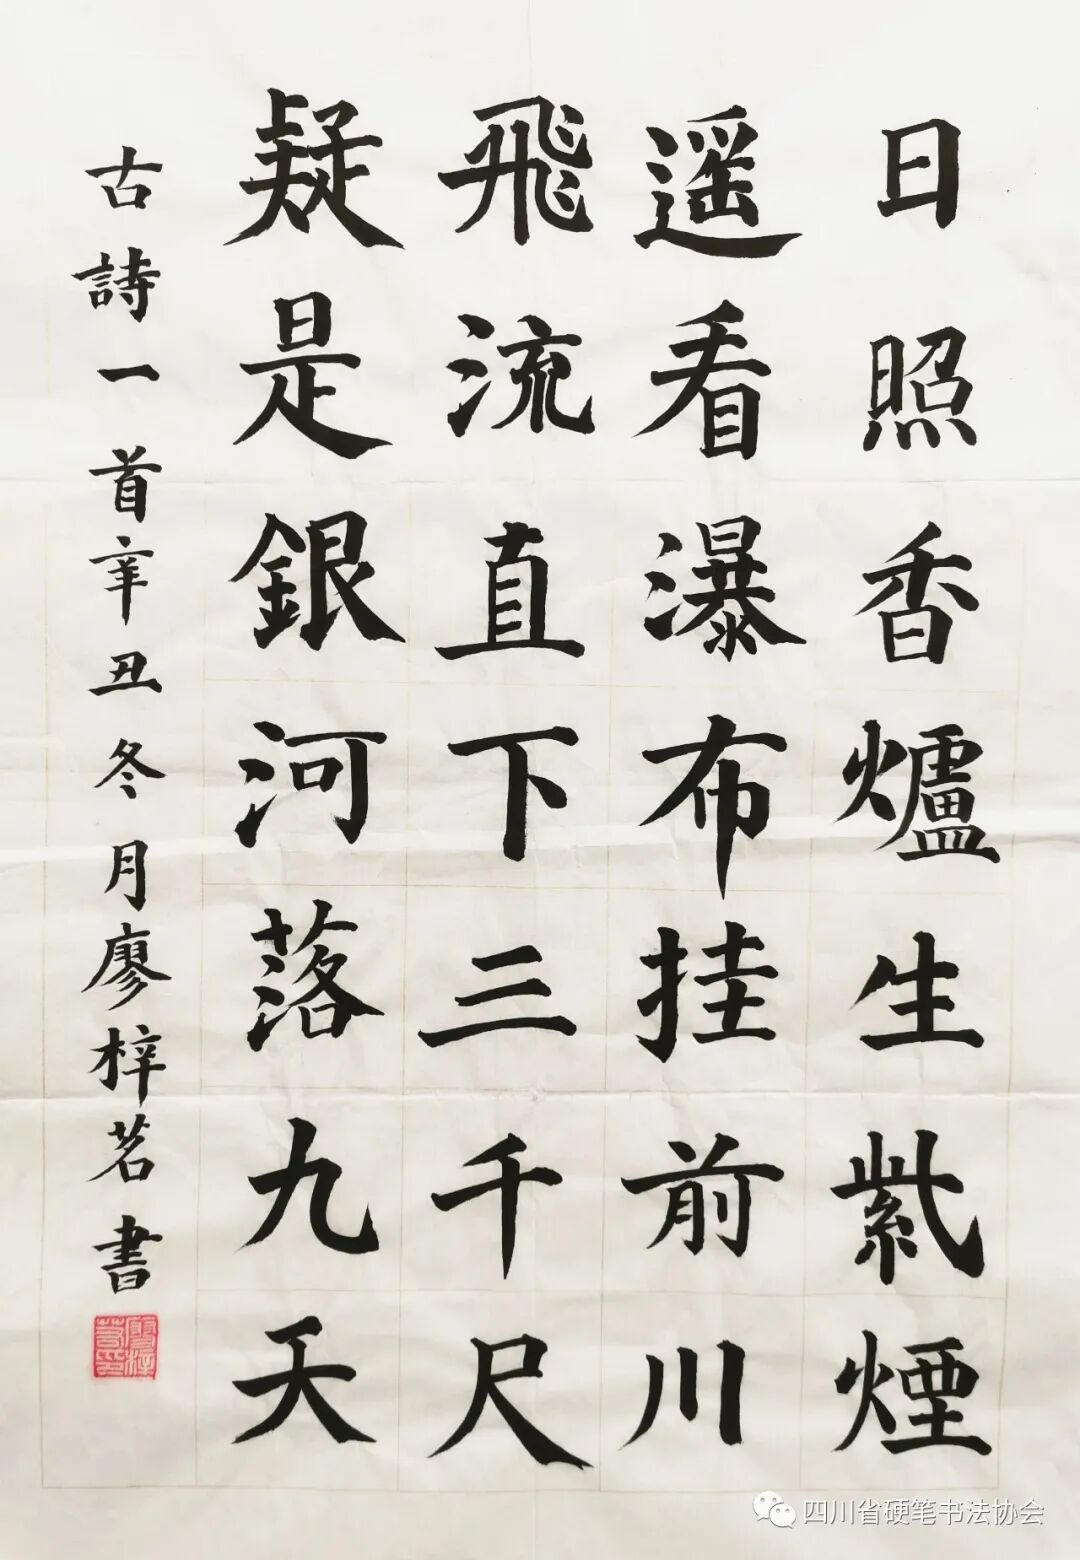 日照香爐生紫煙
遥看瀑布挂前川
飛流直下三千尺
疑是銀河落九天
古詩一首辛丑冬月廖梓茗書
四川省硬笔书法协会